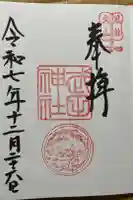 奉拝
武田神社
令和七年十二月二十六日